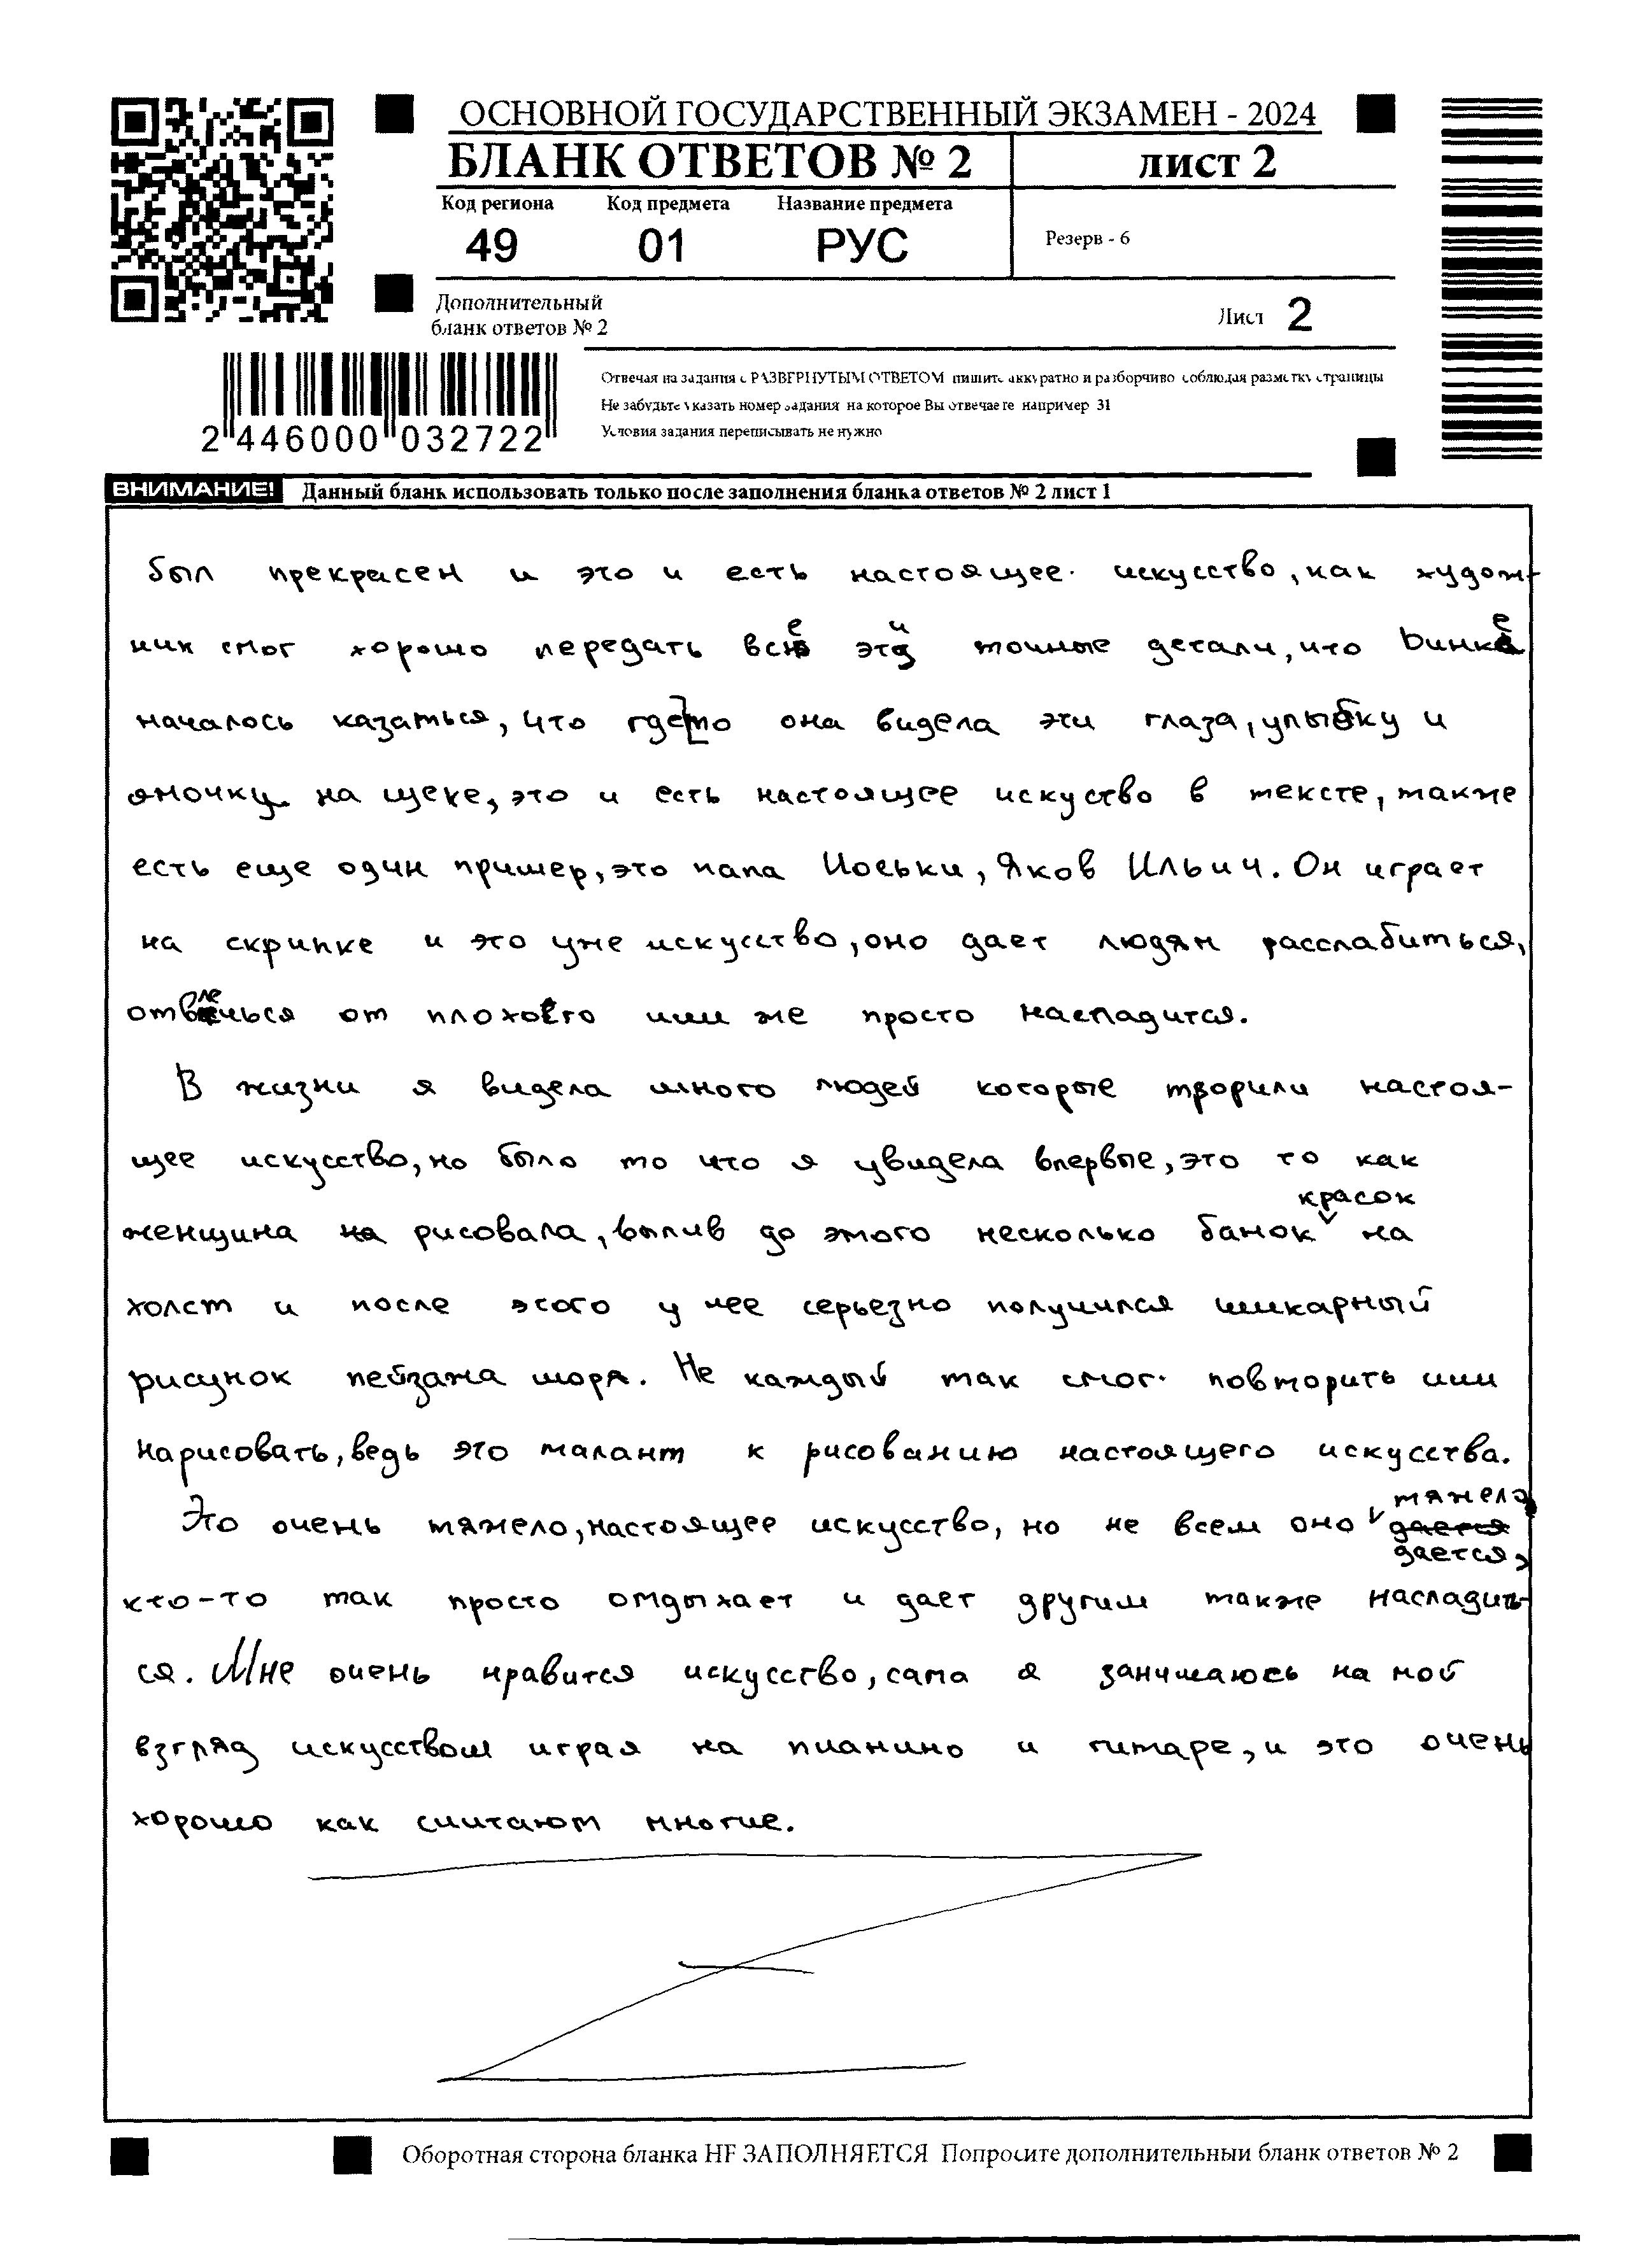 ОСНОВНОЙ ГОСУДАРСТВЕННЫЙ ЭКЗАМЕН - 2024
БЛАНК ОТВЕТОВ № 2
лист 2
Код региона Код предмета Название предмета
49 01 РУС
Резерв - 6
Дополнительный
бланк ответов № 2
Лист 2
2 446000 032722
Отвечая на задания с РАЗВЕРНУТЫМ ОТВЕТОМ пишите аккуратно и разборчиво соблюдая разметку страницы
Не забудьте указать номер задания на которое Вы отвечаете например 31
Условия задания переписывать не нужно
ВНИМАНИЕ! Данный бланк использовать только после заполнения бланка ответов № 2 лист 1
был прекрасен и это и есть настоящее искусство, как худож-
ник смог хорошо передать все эти точные детали, что Динке
началось казаться, что где[то она видела эти глаза, улыбку и
ямочку на щеке, это и есть настоящее искуство в тексте, также
есть еще один пример, это папа Иоськи, Яков Ильич. Он играет
на скрипке и это уже искусство, оно дает людям расслабиться,
отвлечься от плохого или же просто насладится.
В жизни я видела много людей которые творили настоя-
щее искусство, но было то что я увидела впервые, это то как
женщина на рисовала, вылив до этого несколько банок красок на
холст и после этого у нее серьезно получился шикарный
рисунок пейзажа моря. Не каждый так смог повторить или
нарисовать, ведь это талант к рисованию настоящего искусства.
Это очень тяжело, настоящее искусство, но не всем оно тяжело дается,
кто-то так просто отдыхает и дает другим также насладить-
ся. Мне очень нравится искусство, сама я занимаюсь на мой
взгляд искусством играя на пианино и гитаре, и это очень
хорошо как считают многие.
Оборотная сторона бланка НЕ ЗАПОЛНЯЕТСЯ Попросите дополнительный бланк ответов № 2